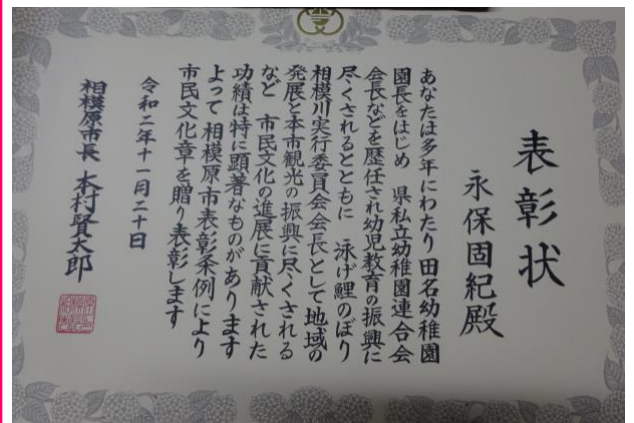 表彰状
永保固紀殿
あなたは多年にわたり 田名幼稚園
園長をはじめ 県私立幼稚園連合会
会長などを歴任され幼児教育の振興に
尽くされるとともに 泳げ鯉のぼり
相模川実行委員会会長として地域の
発展と本市観光の振興に尽くされる
など 市民文化の進展に貢献された
功績は特に顕著なものがあります
よって 相模原市表彰条例により
市民文化章を贈り表彰します
令和二年十一月二十日
相模原市長 本村賢太郎